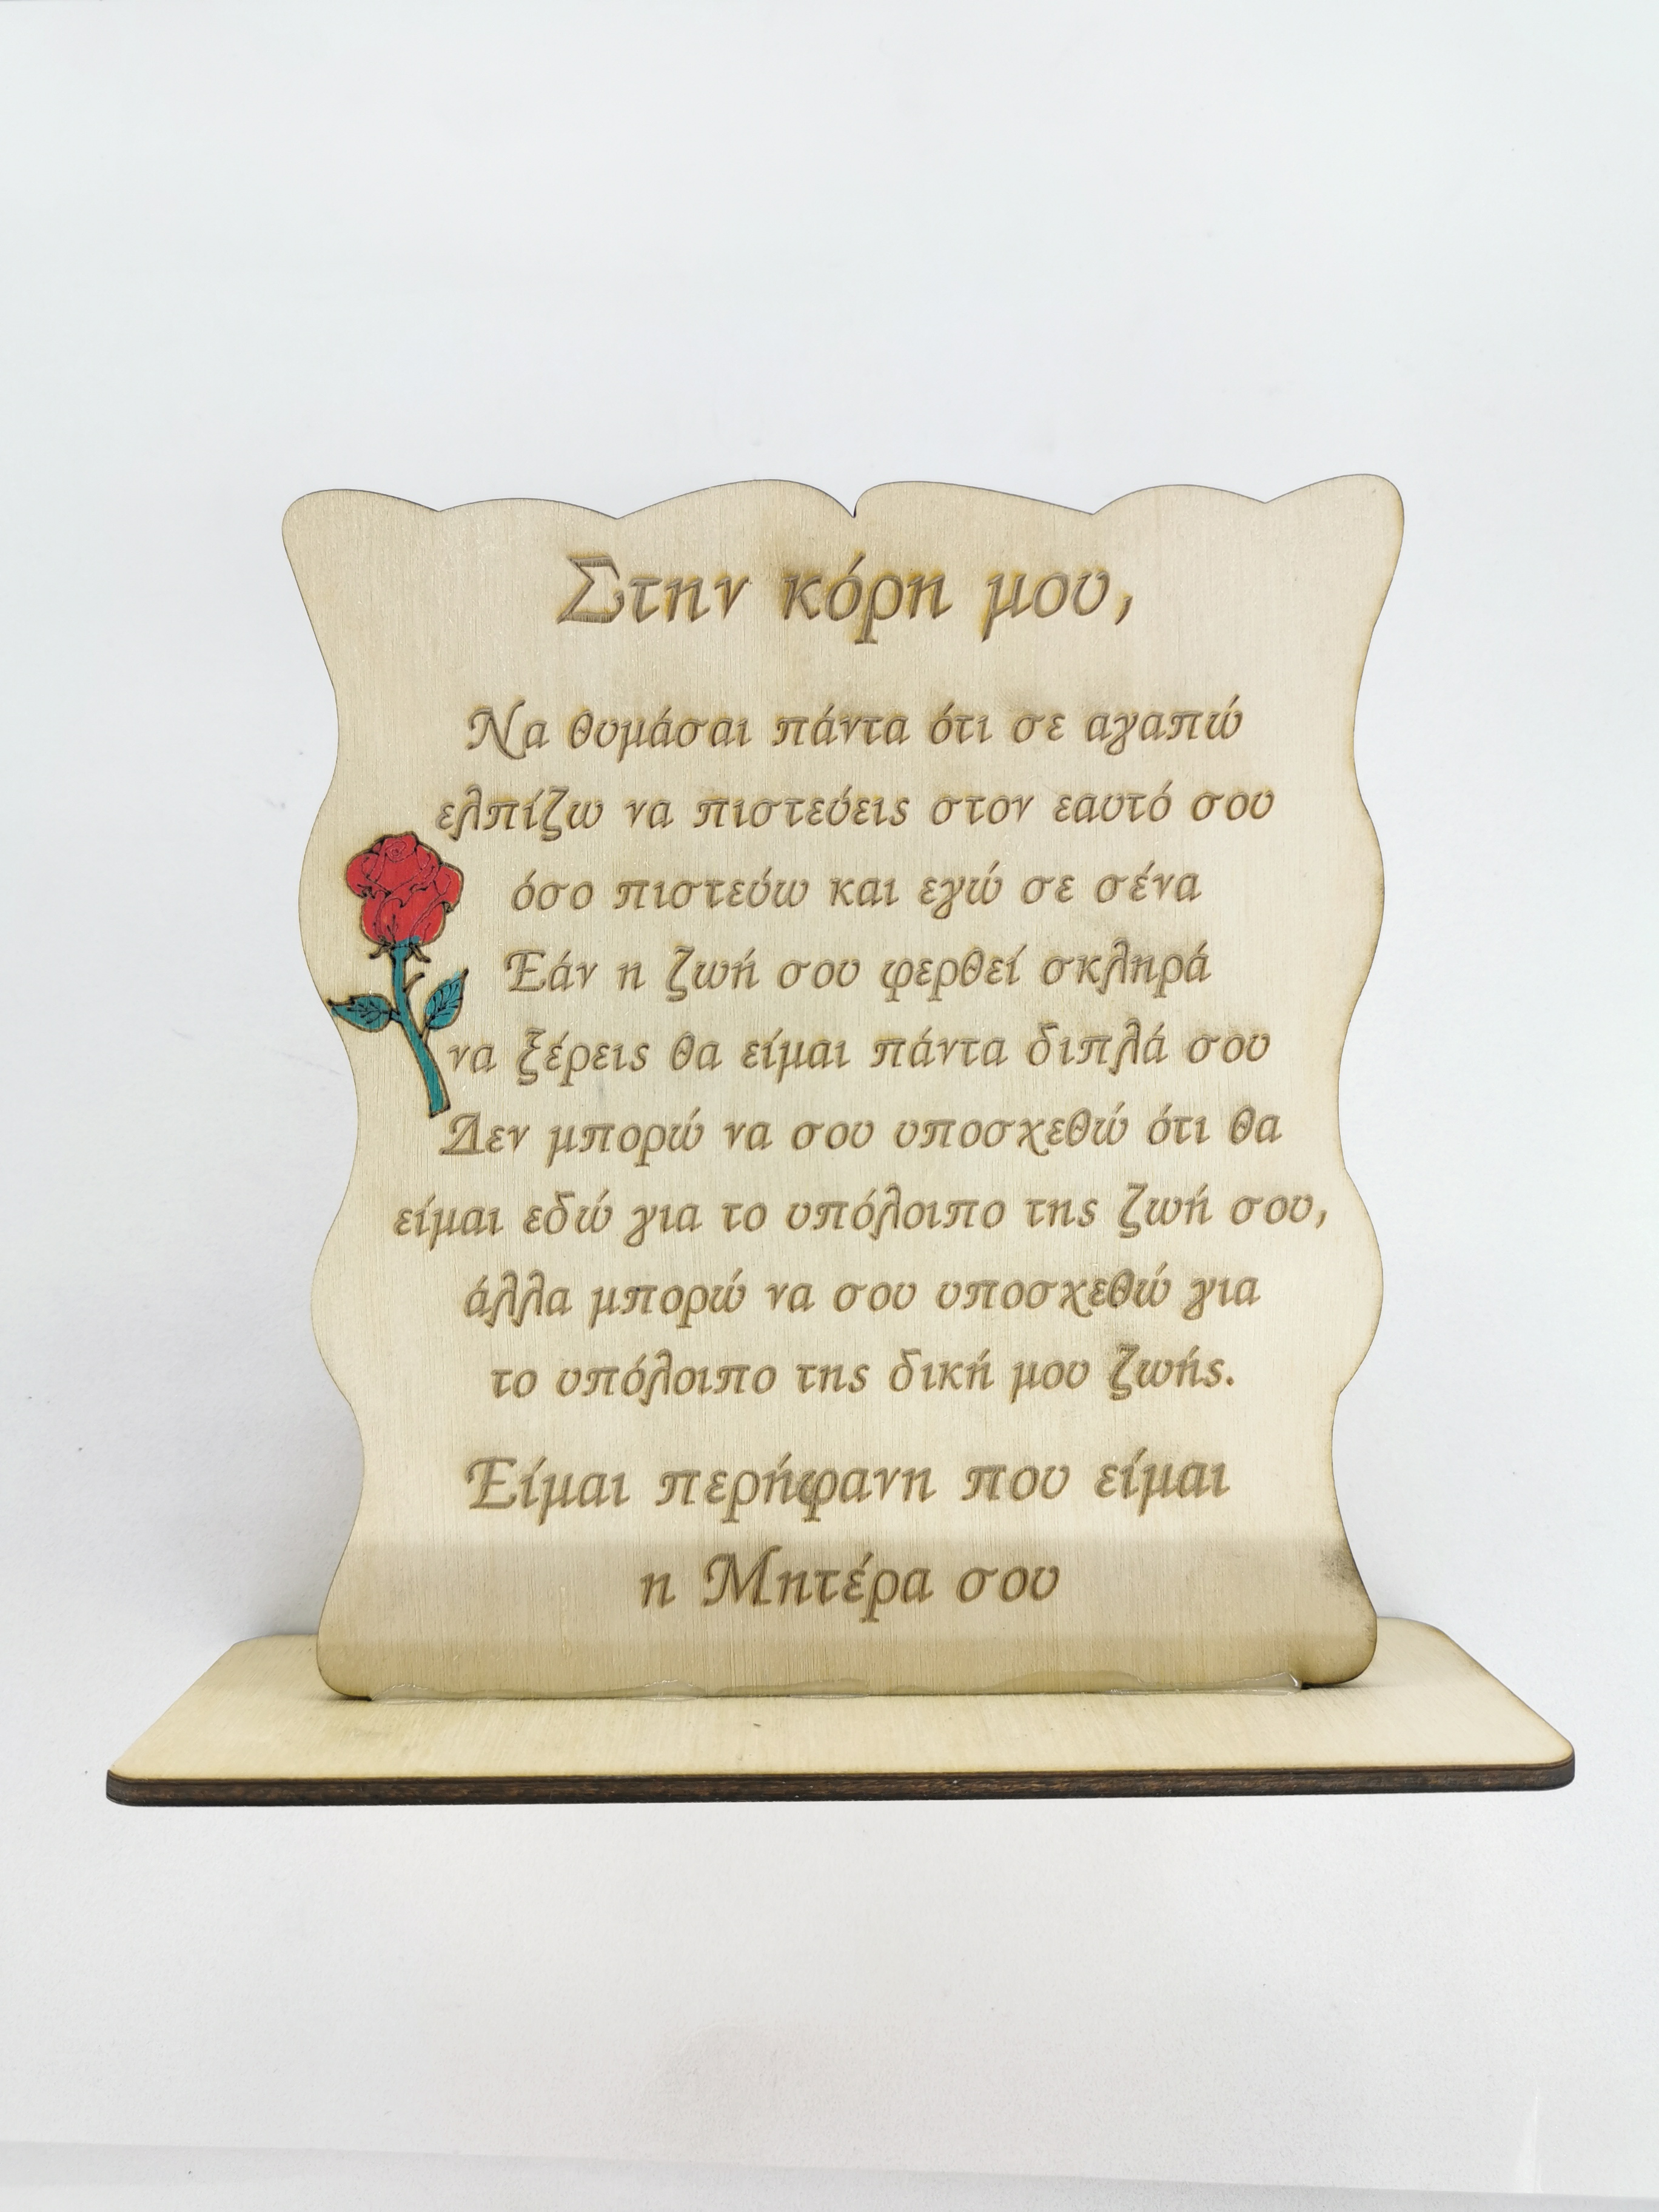 Στην κόρη μου,
Να θυμάσαι πάντα ότι σε αγαπώ
ελπίζω να πιστεύεις στον εαυτό σου
όσο πιστεύω και εγώ σε σένα
Εάν η ζωή σου φερθεί σκληρά
να ξέρεις θα είμαι πάντα διπλά σου
Δεν μπορώ να σου υποσχεθώ ότι θα
είμαι εδώ για το υπόλοιπο της ζωή σου,
άλλα μπορώ να σου υποσχεθώ για
το υπόλοιπο της δική μου ζωής.
Είμαι περήφανη που είμαι
η Μητέρα σου